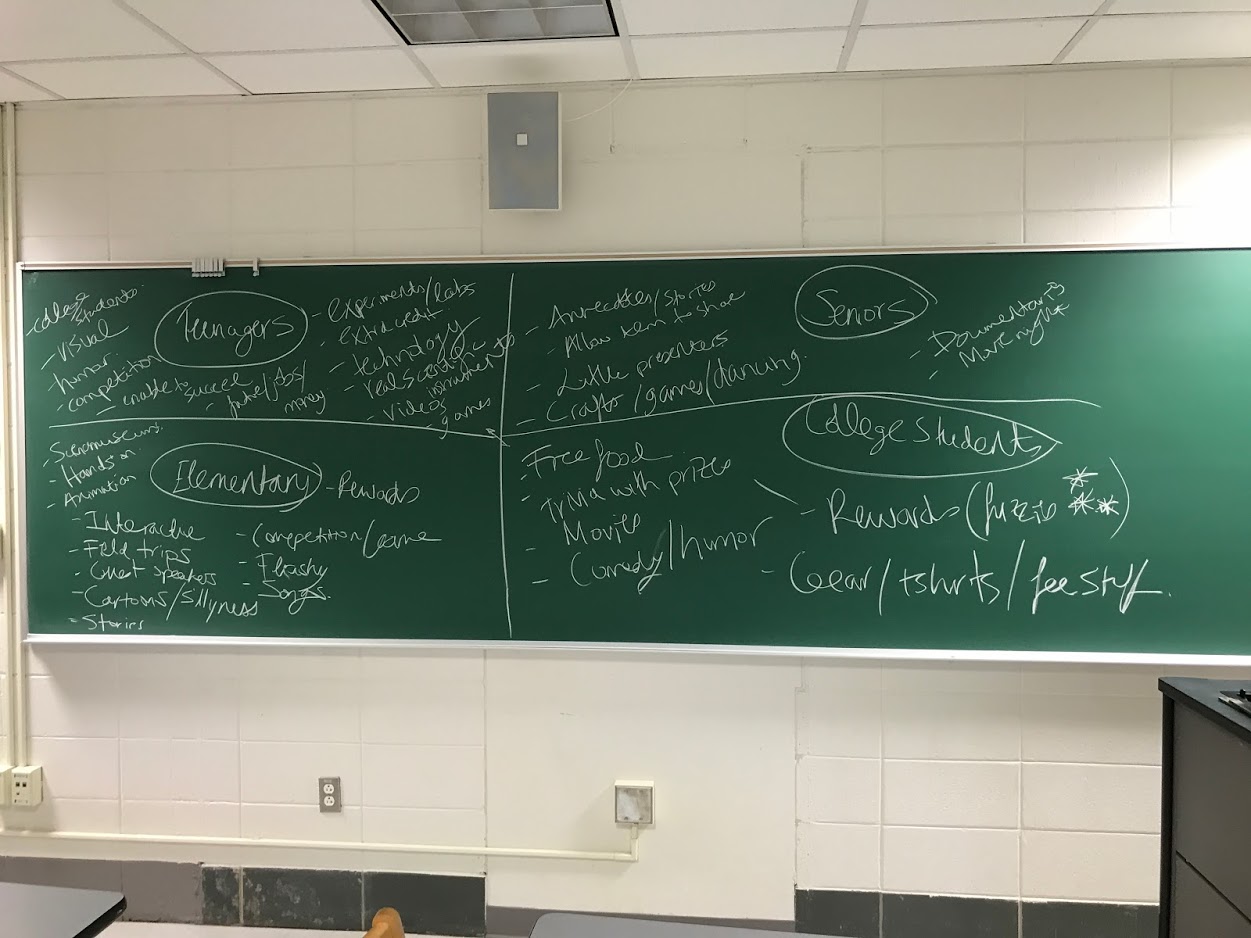 Teenagers
- college students
- visual
- humor
- competition
- enable to succeed
- future/jobs/
money
- experiments/labs
- extra credit
- technology
- real scientific
instruments
- videos
- games
Seniors
- Anecdotes/stories
- Allow them to share
- Little presenters
- Crafts/games/dancing
- Documentaries
- Movie night
Elementary
- Hands on
- Animation
- Interactive
- Field trips
- Guest speakers
- Cartoons/sillyness
- Stories
- Rewards
- Competition/Game
- Flashy
- Songs
College Students
- Free food
- Trivia with prizes
- Movies
- Comedy/humor
- Rewards (
- Gear/tshirts/free stuff